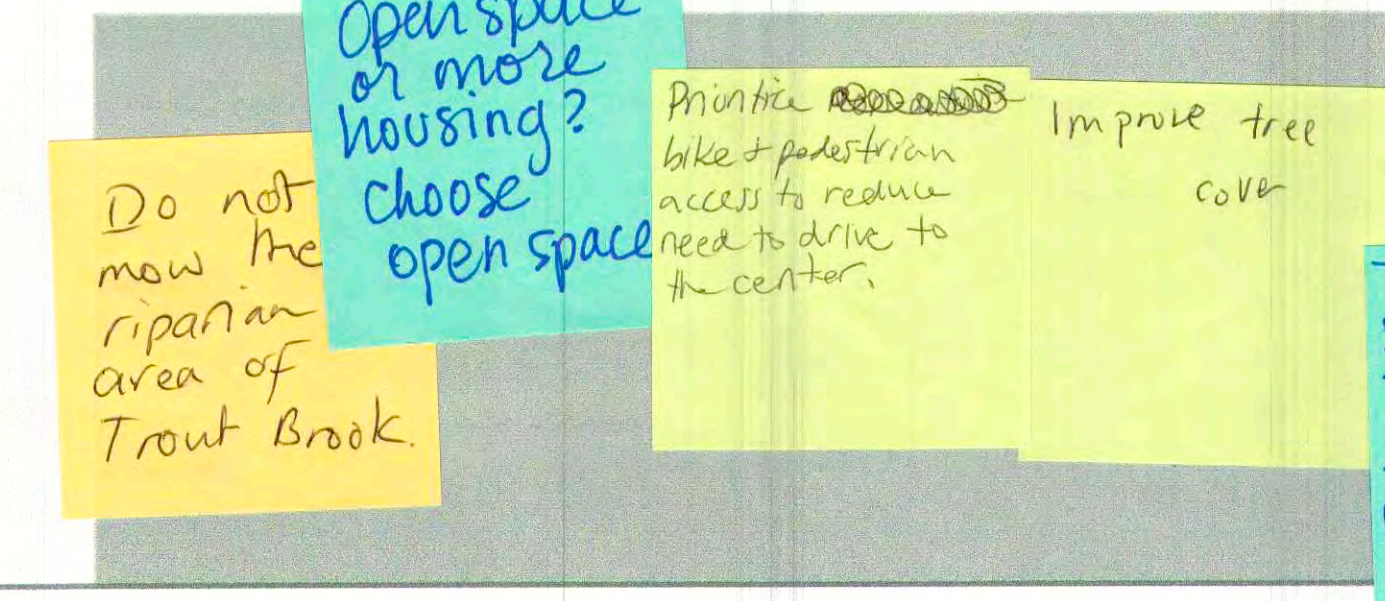 Do not
mow the
riparian
area of
Trout Brook.
Open space
or more
housing?
choose
open space
Prioritize
bike + pedestrian
access to reduce
need to drive to
the center.
Improve tree
cover